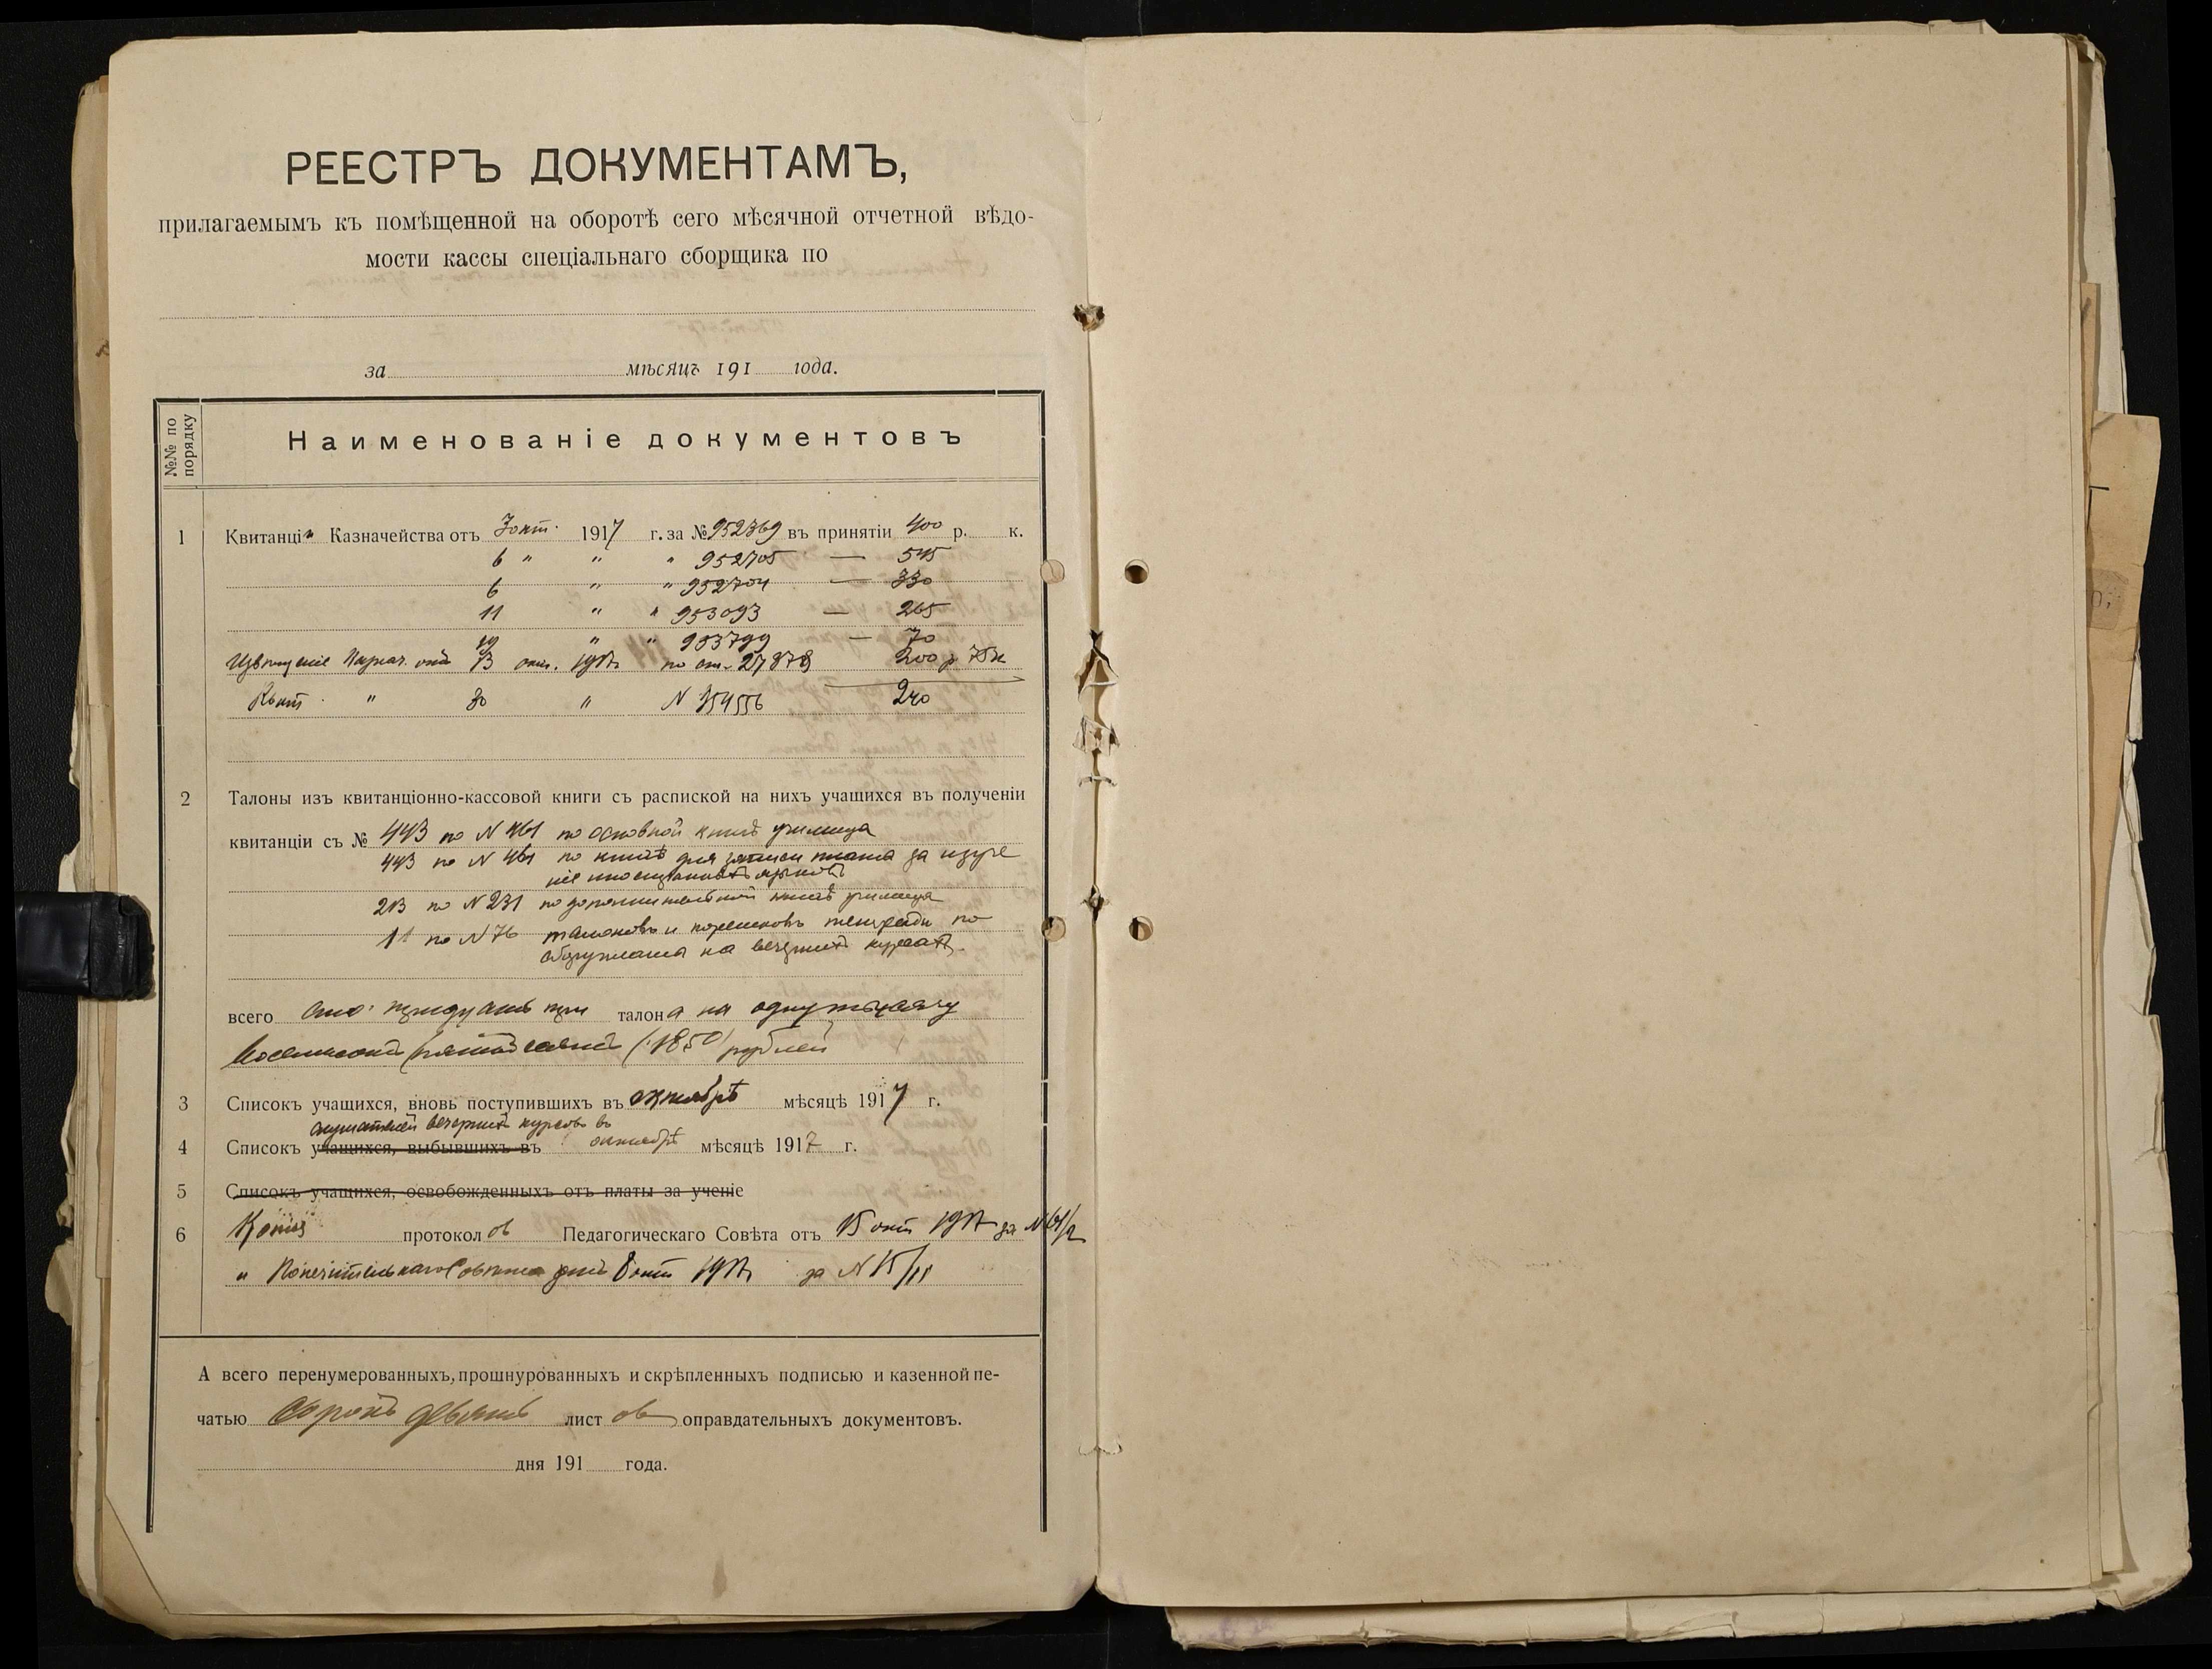 РЕЕСТРЪ ДОКУМЕНТАМЪ,
прилагаемымъ къ помѣщенной на оборотѣ сего мѣсячной отчетной вѣдо-
мости кассы спеціальнаго сборщика по
за мѣсяцъ 191 года.
№№ по порядку
Наименованіе документовъ
1 Квитанціи Казначейства отъ 3 окт. 1917 г. за № 952369 въ принятіи 400 р. к.
6 " " " 952705 — 545
6 " " 952704 — 330
11 " " 953093 — 265
19 " " 953799 — 70
Казнач. отъ 13 окт. 1917 по 27878 200 р 75 к
Квит. " 30 " N 354556 240
2 Талоны изъ квитанціонно-кассовой книги съ распиской на нихъ учащихся въ полученіи
квитанціи съ № 443 по N 461 по основной книгѣ училища
443 по N 461 по книгѣ для записи платы за изуче
ніе иностранныхъ языковъ
213 по N 231 по дополнительной книгѣ училища
11 по N 76 талоновъ и корешковъ тетради по
на вечернихъ курсахъ.
всего сто тридцать три талона на одну тысячу
восемьсотъ пятьдесятъ (1850) рублей
3 Списокъ учащихся, вновь поступившихъ въ октябрѣ мѣсяцѣ 1917 г.
слушателей вечернихъ курсовъ въ
4 Списокъ учащихся, выбывшихъ въ октябрѣ мѣсяцѣ 1917 г.
5 Списокъ учащихся, освобожденныхъ отъ платы за ученіе
6 Копія протоколовъ Педагогическаго Совѣта отъ 15 окт 1917 за N 61/2
" Попечительнаго Совѣта 8 окт 1917 за N 15/11
А всего перенумерованныхъ, прошнурованныхъ и скрѣпленныхъ подписью и казенной пе-
чатью сорокъ девять листовъ оправдательныхъ документовъ.
дня 191 года.